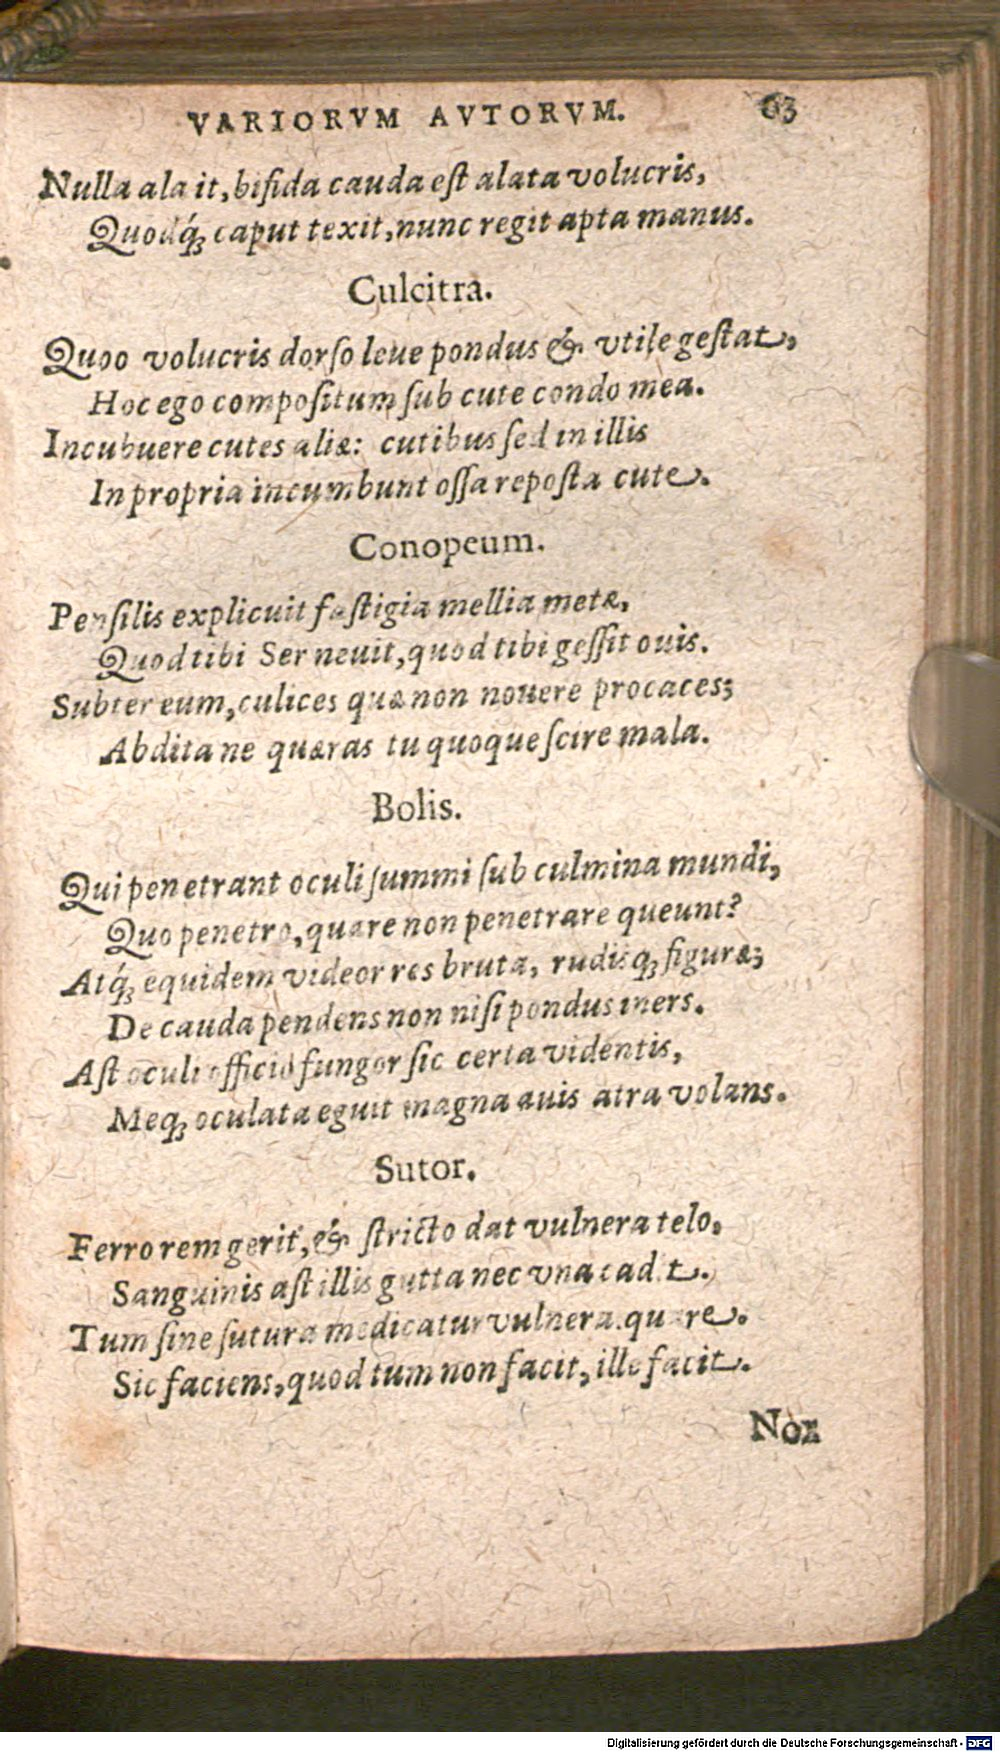 VARIORVM AVTORVM. 63
Nulla ala it, bifida cauda eſt alata volucris,
Quodq́ꝫ caput texit, nunc regit apta manus.
Culcitra.
Quoo volucris dorſo leue pondus & vtile geſtat,
Hoc ego compoſitum ſub cute condo mea.
Incubuere cutes aliæ: cutibus ſed in illis
In propria incumbunt oſſa repoſta cute.
Conopeum.
Penſilis explicuit faſtigia mellia metæ,
Quod tibi Ser neuit, quod tibi geſſit ouis.
Subter eum, culices quæ non nouere procaces;
Abdita ne quæras tu quoque ſcire mala.
Bolis.
Qui penetrant oculi ſummi ſub culmina mundi,
Quo penetro, quare non penetrare queunt?
Atq́ꝫ equidem videor res bruta, rudisqꝫ figuræ;
De cauda pendens non niſi pondus iners.
Aſt oculi officio fungor ſic certa videntis,
Meqꝫ oculata eguit magna auis atra volans.
Sutor.
Ferro rem gerit, & ſtricto dat vulnera telo,
Sanguinis aſt illis gutta nec vna cadit.
Tum ſine ſutura medicatur vulnera. quare.
Sic faciens, quod tum non facit, ille facit.
Nox
Digitalisierung gefördert durch die Deutsche Forschungsgemeinschaft - DFG